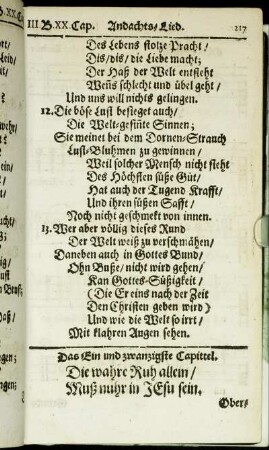 III. B. XX. Cap. Andachts-Lied. 217
Des Lebens stolze Pracht/
Dis/ dis/ die Liebe macht;
Der Haß der Welt entsteht
Weñs schlecht und übel geht/
Und uns will nichts gelingen.
12. Die böse Lust besieget auch/
Die Welt-gesüte Sinnen;
Sie meinet bei dem Dornen-Strauch
Lust-Bluhmen zu gewinnen/
Weil solcher Mensch nicht sieht
Des Höchsten süße Güt/
Hat auch der Tugend Krafft/
Und ihren süßen Safft/
Noch nicht geschmekt von innen.
13. Wer aber völlig dieses Rund
Der Welt weiß zu verschmähen/
Daneben auch in Gottes Bund/
Ohn Buße/ nicht wird gehen/
Kan Gottes-Süßigkeit/
(Die Er eins nach der Zeit
Den Christen geben wird)
Und wie die Welt so irrt/
Mit klahren Augen sehen.
Das Ein und zwanzigste Capittel.
Die wahre Ruh allein/
Muß nuhr in JEsu sein.
Ober-